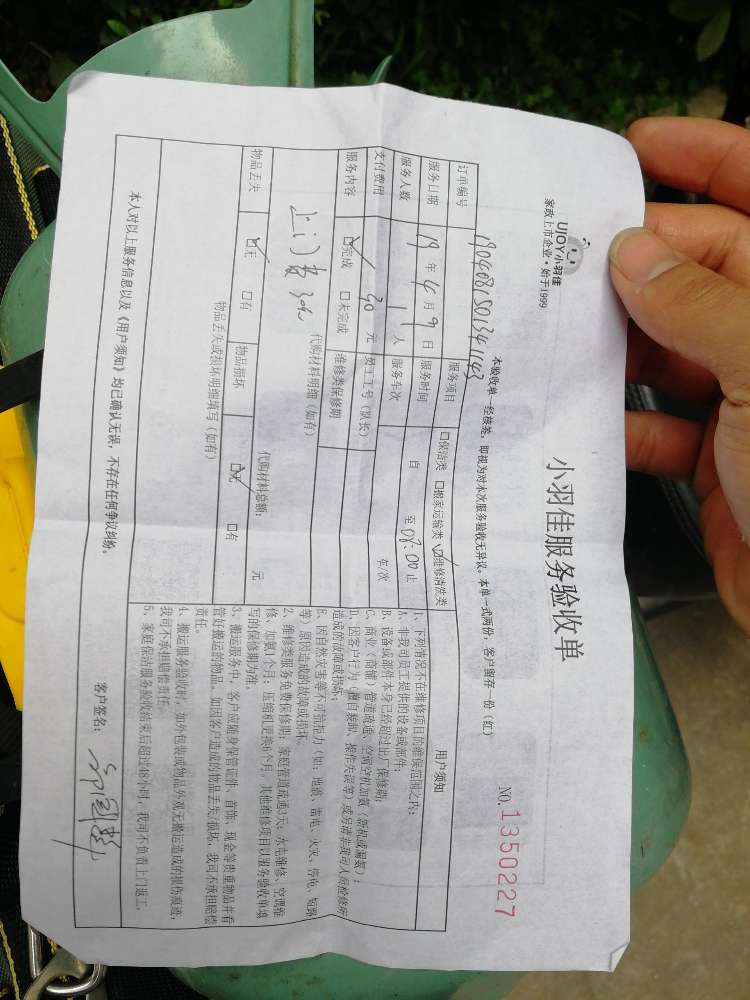 UJOY小羽佳
家政上市企业·始于1999
小羽佳服务验收单
NO.1350227
本验收单一经核签，即视为对本次服务验收无异议。本单一式两份，客户留存一份（红）
订单编号 服务项目 □保洁类 □搬家运输类 ☑维修清洗类
服务日期 19年4月9日 服务时间 自 至 08:00 止
服务人数 1人 服务车次 车/次
支付费用 30元 员工工号（队长）
服务内容 ☑完成 □未完成 维修类保修期
代购材料明细（如有）
上门费30
代购材料总额： 元
物品丢失 ☑无 □有 物品损坏 ☑无 □有
物品丢失或损坏明细填写（如有）
本人对以上服务信息以及《用户须知》均已确认无误，不存在任何争议纠纷。
用户须知
1、下列情况不在维修项目的维保范围之内：
A、非我司员工提供的设备或部件；
B、设备或部件本身已经超过出厂保修期；
C、商业（商铺）管道疏通，空调空机加氨（容积或漏氨）；
D、因客户行为（擅自装卸、操作失误等）或另请非我司人员检修所
造成的故障或损坏；
E、因自然灾害等不可抗拒力（如：地震、雷电、火灾、停电、短路
等）原因造成的故障或损坏。
2、维修类服务免费保修期：家庭管道疏通3天；水电维修、空调维
修、加氨1个月；压缩机更换6个月，其他维修项目以服务验收单填
写的保修期为准。
3、搬运服务中，客户应随身保管证件、首饰、现金等贵重物品并看
管好搬运的物品。如因客户造成的物品丢失/损坏，我司不承担赔偿
责任。
4、搬运服务验收时，如外包装或物品外观无搬运造成的损伤痕迹，
我司不承担赔偿责任。
5、家庭保洁服务验收结束后超过48小时，我司不负责上门返工。
客户签名：